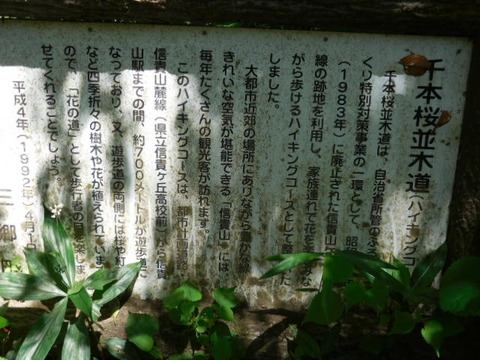 千本桜並木道(ハイキングコ
千本桜並木道は、自治省所管のふる
くり特別対策事業の一環として、昭
(1983年)に廃止された信貴山
線の跡地を利用し、家族連れで花を
がら歩けるハイキングコースとして
しました。
大都市近郊の場所にありながら豊かな緑
きれいな空気が堪能できる「信貴山」には
毎年たくさんの観光客が訪れます。
このハイキングコースは、都市計画道路
信貴山麓線(県立信貴ヶ丘高校前)から
山駅までの間、約700メートルが遊歩道に
なっており、又、遊歩道の両側には桜や
など四季折々の樹木や花が植えられていま
ので、「花の道」として歩行者の目を楽しま
せてくれることでしょう。
平成4年(1992年)4月
三郷町